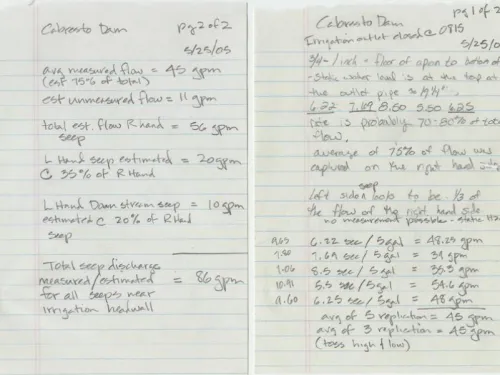 Cabresto Dam pg 2 of 2
5/25/05
avg measured flow = 45 gpm
(est 75% of total)
est unmeasured flow = 11 gpm
total est. flow R hand = 56 gpm
seep
L Hand seep estimated = 20 gpm
@ 35% of R Hand
L Hand Down stream seep = 10 gpm
estimated @ 20% of R Hand
seep
Total seep discharge
measured/estimated = 86 gpm
for all seeps near
irrigation headwall
pg 1 of 2
Cabresto Dam
Irrigation outlet closed @ 0815
5/25/05
floor of apron to bottom of
- static water level is at the top of
the outlet pipe
6.22 7.69 8.50 5.50 6.25
rate is probably 70-80% of total
flow.
average of 75% of flow was
captured on the right hand side
seep
Left side looks to be 1/3 of
the flow of the right hand side
no measurement possible - static H2O
6.22 sec/5gal = 48.23 gpm
7.69 sec/5gal = 39 gpm
8.5 sec/5gal = 35.3 gpm
10.91 5.5 sec/5gal = 54.6 gpm
9.60 6.25 sec/5gal = 48 gpm
avg of 5 replication = 45 gpm
avg of 3 replication = 45 gpm
(toss high & low)